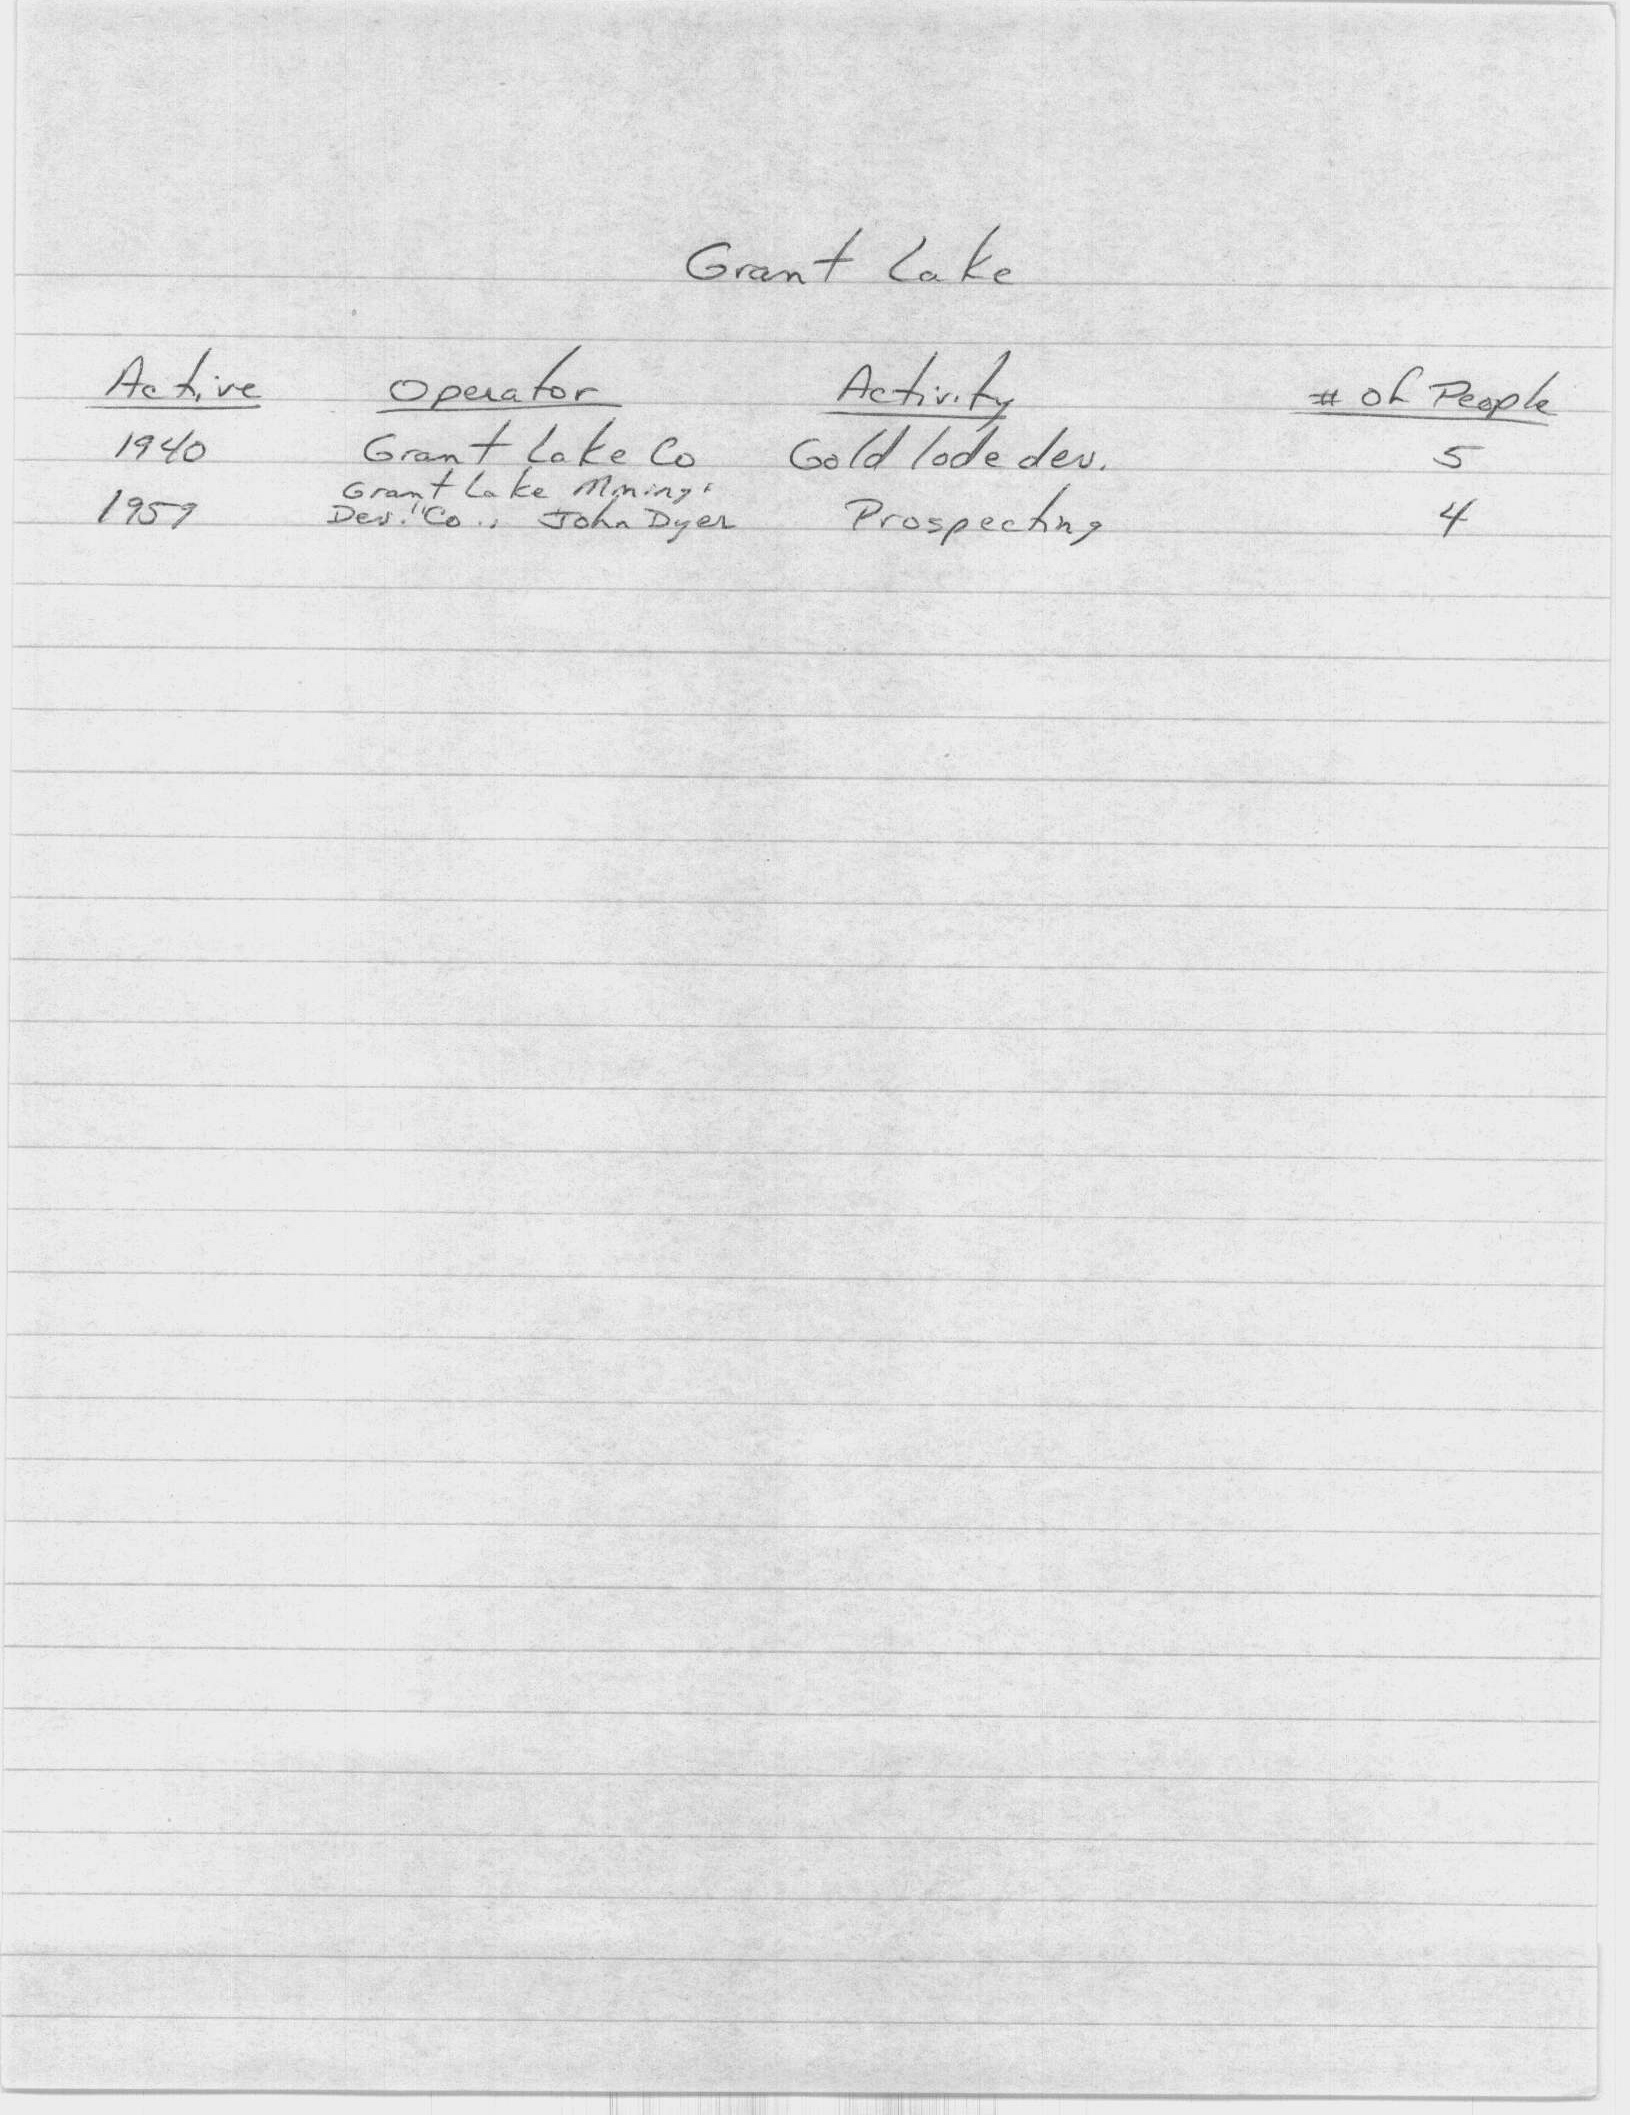 Grant Lake
Active Operator Activity # of People
1940 Grant Lake Co Gold lode dev. 5
Grant Lake Mining
1959 Dev. Co., John Dyer Prospecting 4